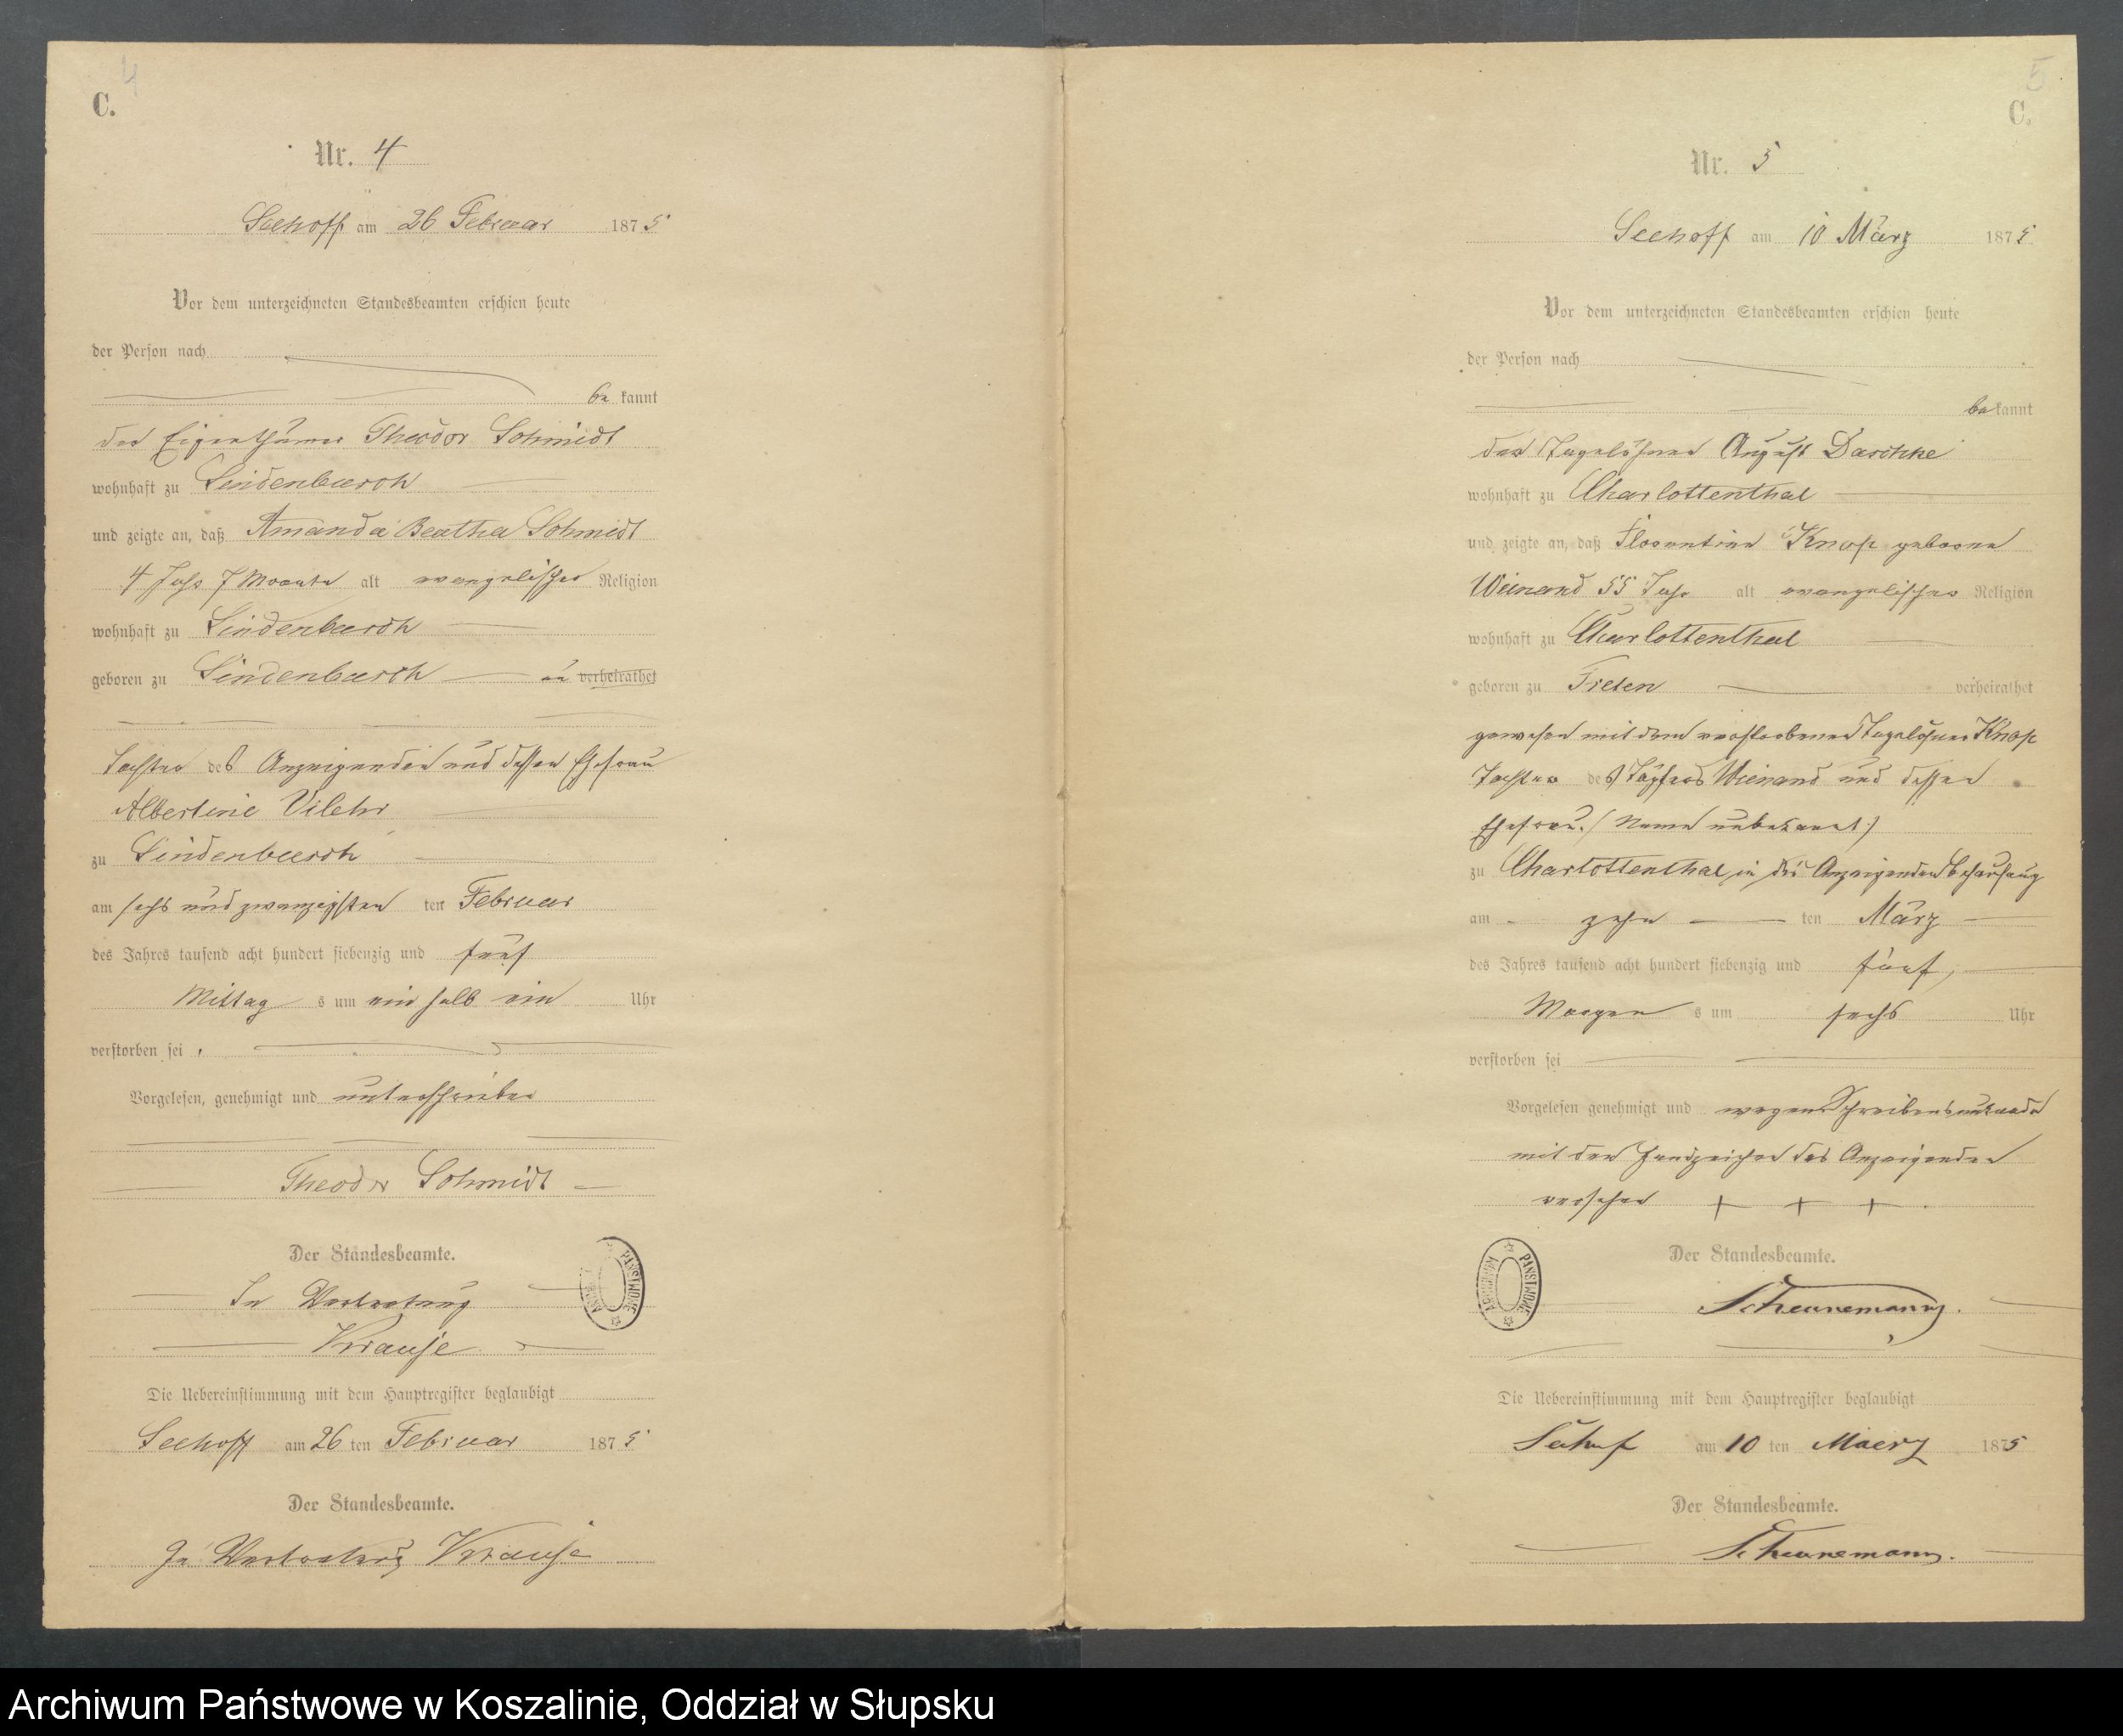 4
C.
Nr. 4
Seehoff am 26 Februar 1875
Vor dem unterzeichneten Standesbeamten erschien heute
der Person nach
be kannt
der Eigenthümer Theodor Schmidt
wohnhaft zu Lindenbusch
und zeigte an, daß Amanda Beatha Schmidt
4 Jahr 7 Monate alt evangelischer Religion
wohnhaft zu Lindenbusch
geboren zu Lindenbusch verheirathet
Tochter des Anzeigenden und dessen Ehefrau
Albertine
zu Lindenbusch
am sechs und zwanzigsten ten Februar
des Jahres tausend acht hundert siebenzig und fünf
Mittag s um ein halb ein Uhr
verstorben sei
Vorgelesen, genehmigt und unterschrieben
Theodor Schmidt
Der Standesbeamte.
In Vertretung
Krause
ARCHIWUM PAŃSTWOWE
Die Uebereinstimmung mit dem Hauptregister beglaubigt
Seehoff am 26 ten Februar 1875
Der Standesbeamte.
In Vertretung Krause
5
C.
Nr. 5
Seehoff am 10 März 1875
Vor dem unterzeichneten Standesbeamten erschien heute
der Person nach
bekannt
der Tagelöhner August Daschke
wohnhaft zu Charlottenthal
und zeigte an, daß Florentine Knop geborne
Weinand 55 Jahr alt evangelischer Religion
wohnhaft zu Charlottenthal
geboren zu Treten verheirathet
gewesen mit dem verstorbenen Tagelöhner Knop
Tochter des Töpfers Weinand und dessen
Ehefrau (Name unbekannt)
zu Charlottenthal, in des Anzeigenden Behausung
am zehn ten März
des Jahres tausend acht hundert siebenzig und fünf,
Morgen s um sechs Uhr
verstorben sei
Vorgelesen genehmigt und wegen Schreibensunkunde
mit dem Handzeichen des Anzeigenden
versehen + + +
Der Standesbeamte.
ARCHIWUM PAŃSTWOWE
Scheunemann.
Die Uebereinstimmung mit dem Hauptregister beglaubigt
Seehof am 10 ten Maerz 1875
Der Standesbeamte.
Scheunemann.
Archiwum Państwowe w Koszalinie, Oddział w Słupsku